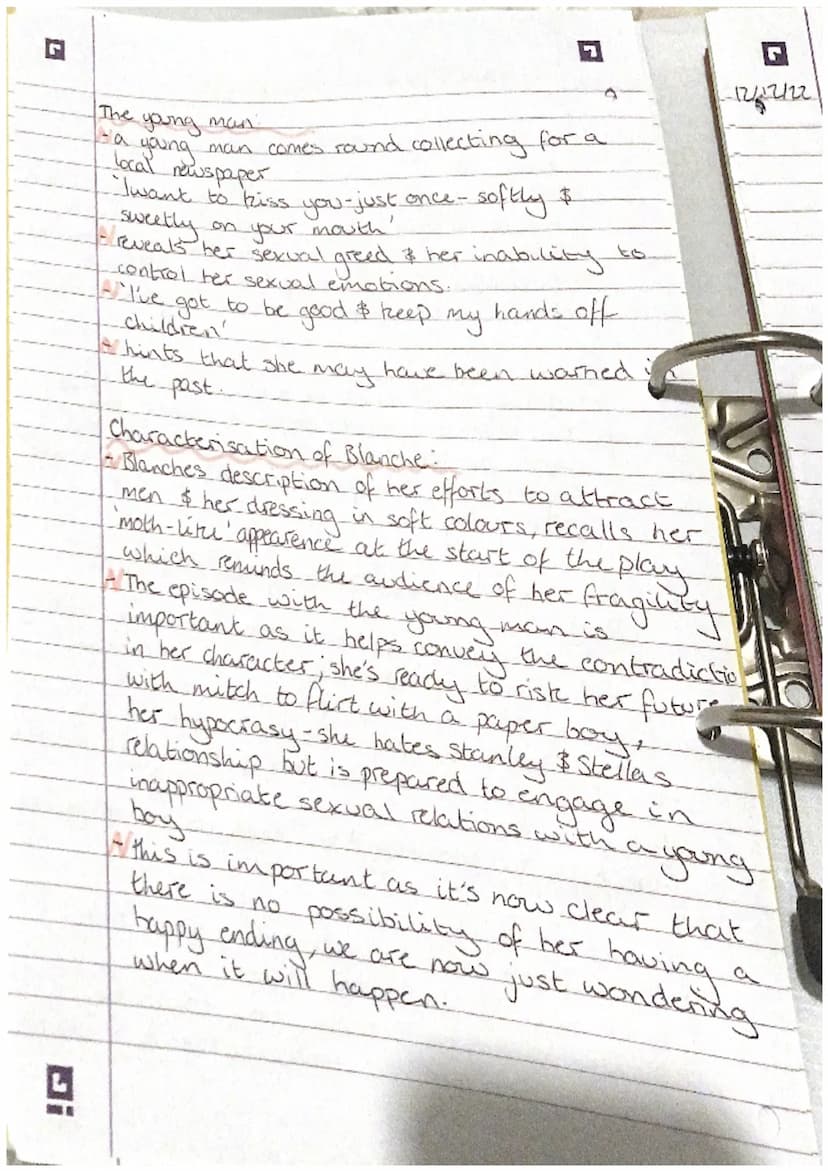 The young man:
- a young man comes round collecting for a
local newspaper
'I want to kiss you - just once - softly &
sweetly on your mouth'
- reveals her sexual greed & her inability to
control her sexual emotions.
- 'I've got to be good & keep my hands off
children'
- hints that she may have been warned in
the past.
Characterisation of Blanche:
- Blanches description of her efforts to attract
men & her dressing in soft colours, recalls her
'moth-like' appearence at the start of the play
which reminds the audience of her fragility
- The episode with the young man is
important as it helps convey the contradictio
in her character; she's ready to risk her future
with mitch to flirt with a paper boy,
her hypocrasy - she hates Stanley & Stellas
relationship but is prepared to engage in
inappropriate sexual relations with a young
boy
- this is important as it's now clear that
there is no possibility of her having a
happy ending, we are now just wondering
when it will happen.
12/12/22